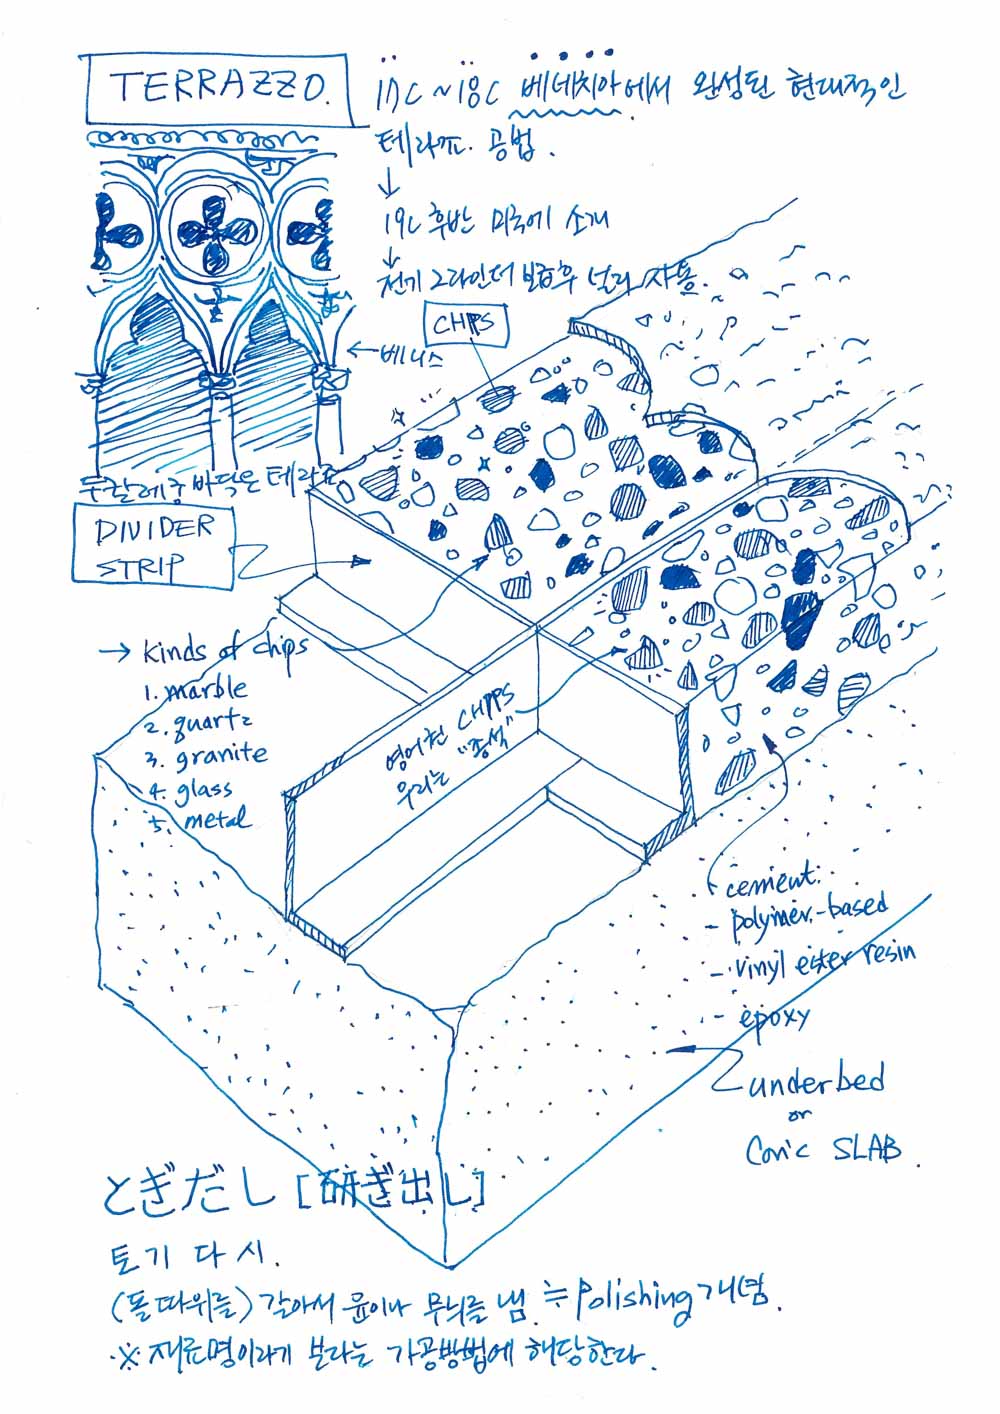 TERRAZZO.
17C ~ 18C 베네치아에서 완성된 현대적인
테라쪼. 공법.
↓
19C 후반 미국에 소개
↓
전기 그라인더 보급후 널리 사용.
CHIPS
← 베니스
두칼레궁 바닥은 테라쪼
DIVIDER
STRIP
→ kinds of chips
1. marble
2. quartz
3. granite
4. glass
5. metal
영어권 CHIPS
우리는 "종석"
- cement.
- polymer-based
- vinyl ester resin
- epoxy
underbed
or
Con'c SLAB.
とぎだし [研ぎ出し]
토기 다 시.
(돌따위를) 갈아서 윤이나 무늬를 냄. ≒ Polishing 개념.
※ 재료명이라기 보다는 가공방법에 해당한다.